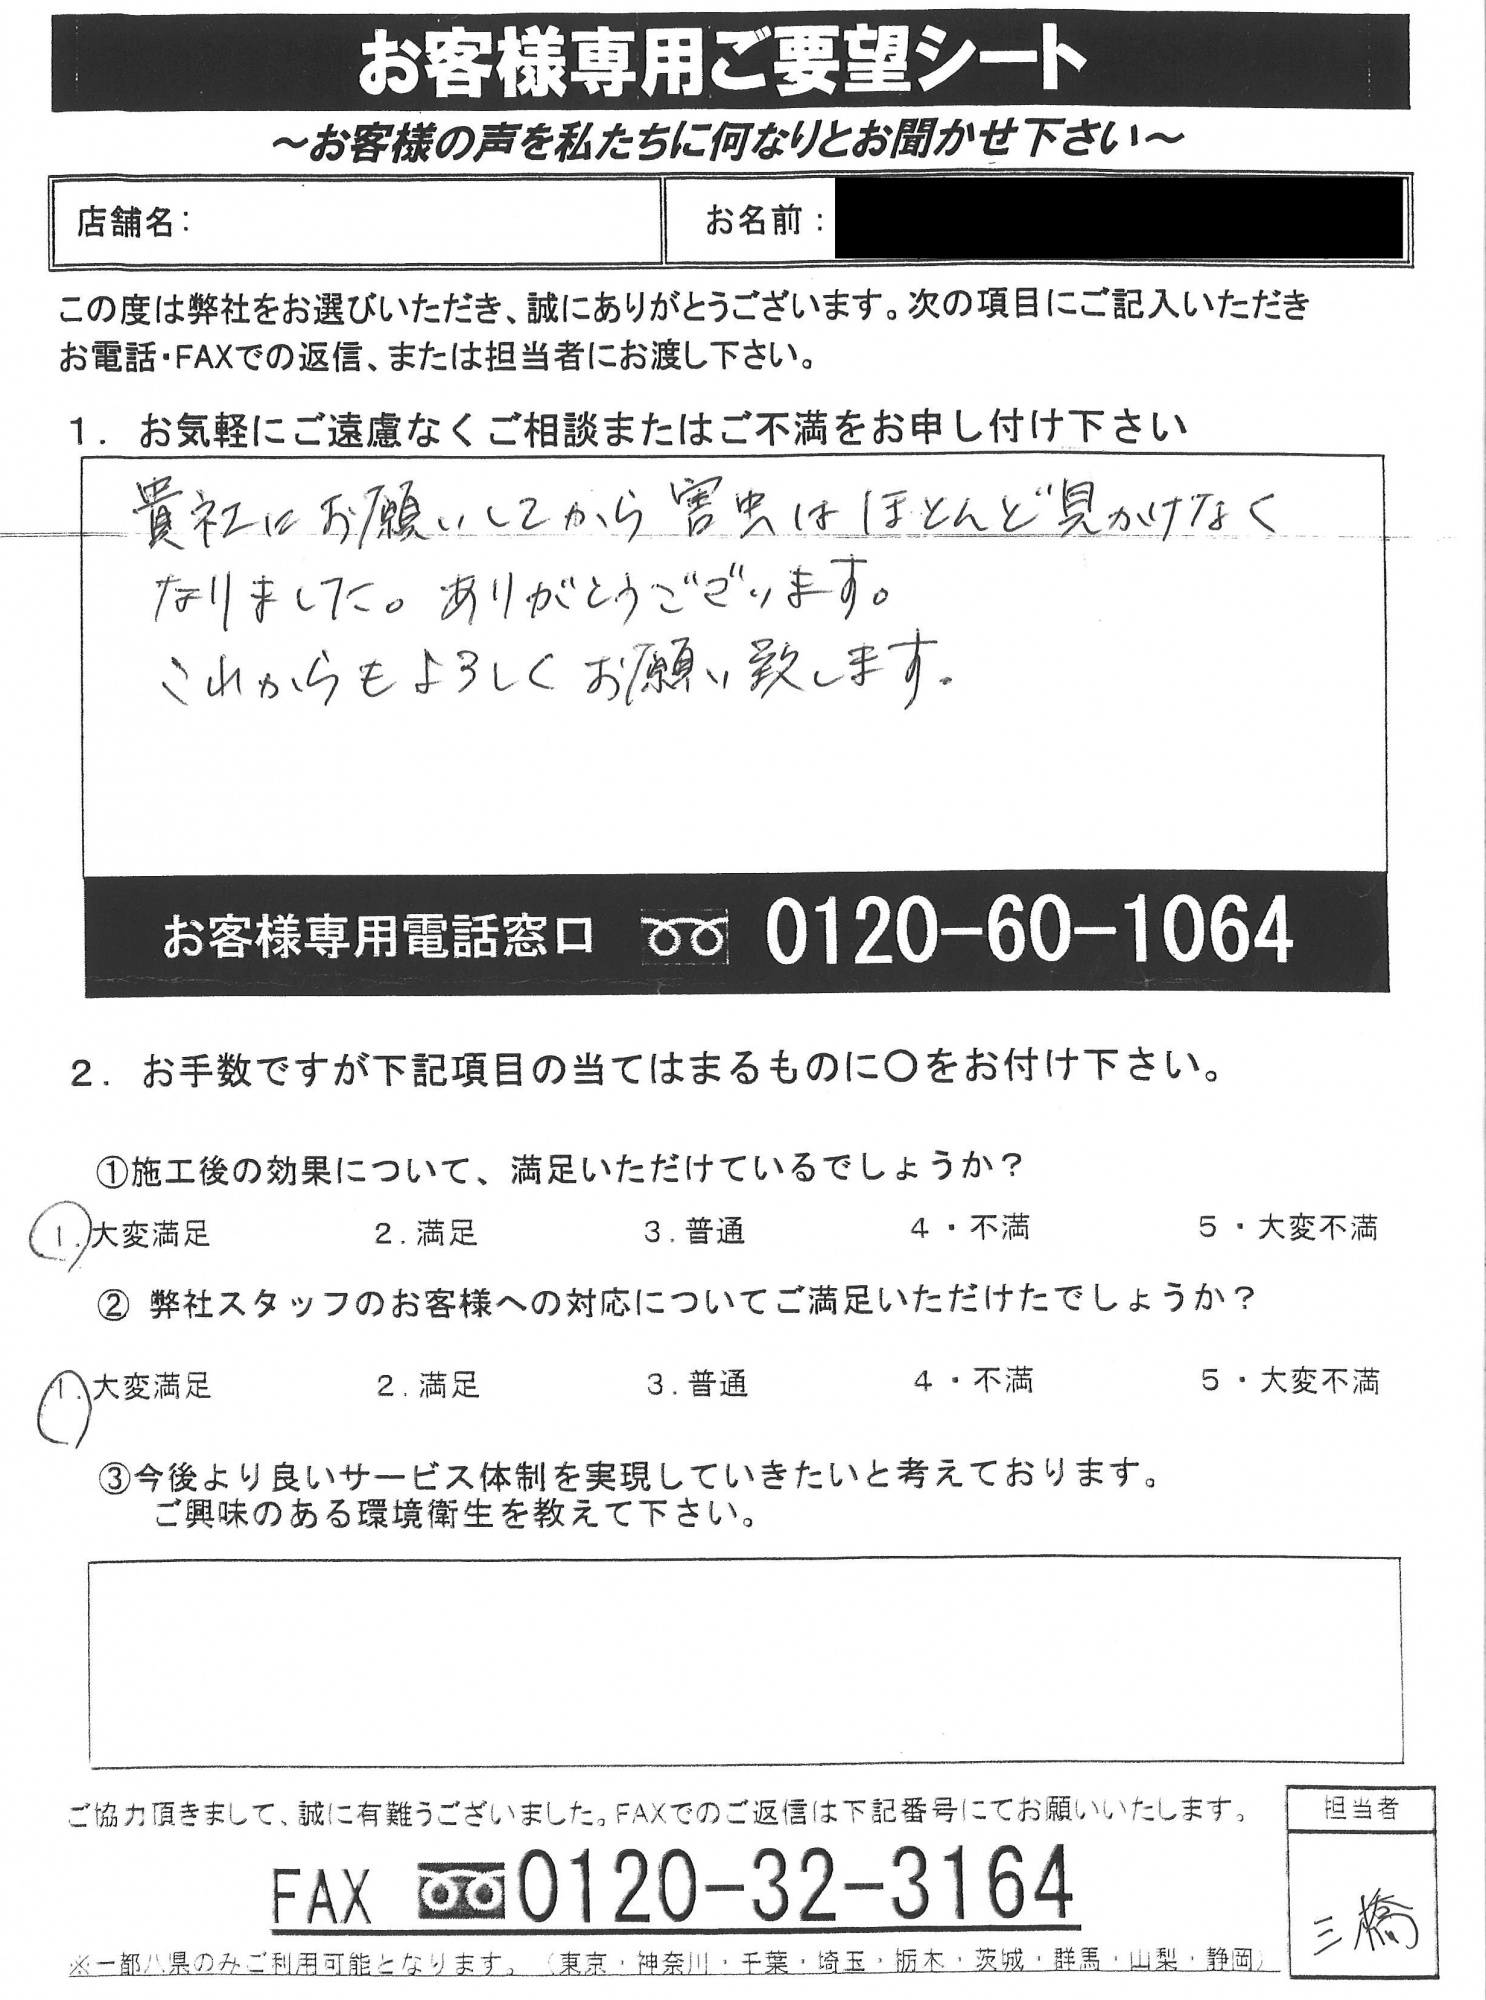 お客様専用ご要望シート
～お客様の声を私たちに何なりとお聞かせ下さい～
店舗名：
お名前：
この度は弊社をお選びいただき、誠にありがとうございます。次の項目にご記入いただき
お電話・FAXでの返信、または担当者にお渡し下さい。
１．お気軽にご遠慮なくご相談またはご不満をお申し付け下さい
貴社にお願いしてから害虫はほとんど見かけなく
なりました。ありがとうございます。
これからもよろしくお願い致します。
お客様専用電話窓口 0120-60-1064
２．お手数ですが下記項目の当てはまるものに〇をお付け下さい。
①施工後の効果について、満足いただけているでしょうか？
1.大変満足 2.満足 3.普通 4・不満 5・大変不満
② 弊社スタッフのお客様への対応についてご満足いただけたでしょうか？
1.大変満足 2.満足 3.普通 4・不満 5・大変不満
③今後より良いサービス体制を実現していきたいと考えております。
ご興味のある環境衛生を教えて下さい。
ご協力頂きまして、誠に有難うございました。FAXでのご返信は下記番号にてお願いいたします。
担当者
FAX 0120-32-3164
三橋
※一都八県のみご利用可能となります。（東京・神奈川・千葉・埼玉・栃木・茨城・群馬・山梨・静岡）